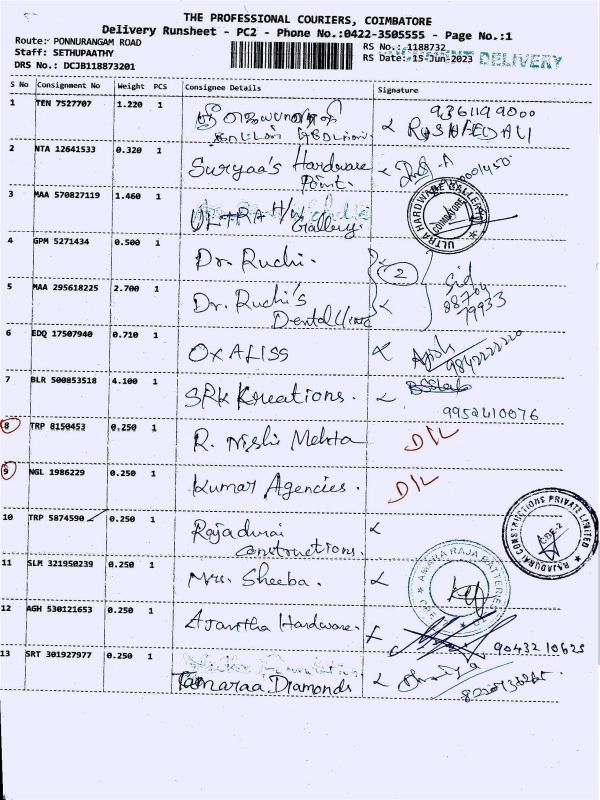 THE PROFESSIONAL COURIERS, COIMBATORE
Delivery Runsheet - PC2 - Phone No.:0422-3505555 - Page No.:1
Route: PONNURANGAM ROAD
RS No.: 1188732
Staff: SETHUPAATHY
RS Date: 15-Jun-2023
DELIVERY
DRS No.: DCJB118873201
S No Consignment No Weight PCS Consignee Details Signature
1 TEN 7527707 1.220 1
9361199000
2 NTA 12641533 0.320 1 Suryaa's Hardware
Point.
3 MAA 570827119 1.460 1 ULTRA H/w
Gallery.
ULTRA HARDWARE GALLERY
COIMBATORE
4 GPM 5271434 0.500 1 Dr. Ruchi.
2
5 MAA 295618225 2.700 1 Dr. Ruchi's
Dental Clinic
Sid
88704
79933
6 EDQ 17507940 0.710 1 OXALISS
7 BLR 500853518 4.100 1 SRK Kreations.
9952410076
8 TRP 8150453 0.250 1 R. Nishi Mehta D/L
9 NGL 1986229 0.250 1 Kumar Agencies. D/L
10 TRP 5874590 0.250 1 Rajadurai
Constructions.
RAJADURAI CONSTRUCTIONS PRIVATE LIMITED
CBE-2
11 SLM 321950239 0.250 1 Mrs. Sheeba.
AMARA RAJA BATTERIES
12 AGH 530121653 0.250 1 Ajantha Hardware.
9043210625
13 SRT 301927977 0.250 1
Tamaraa Diamonds